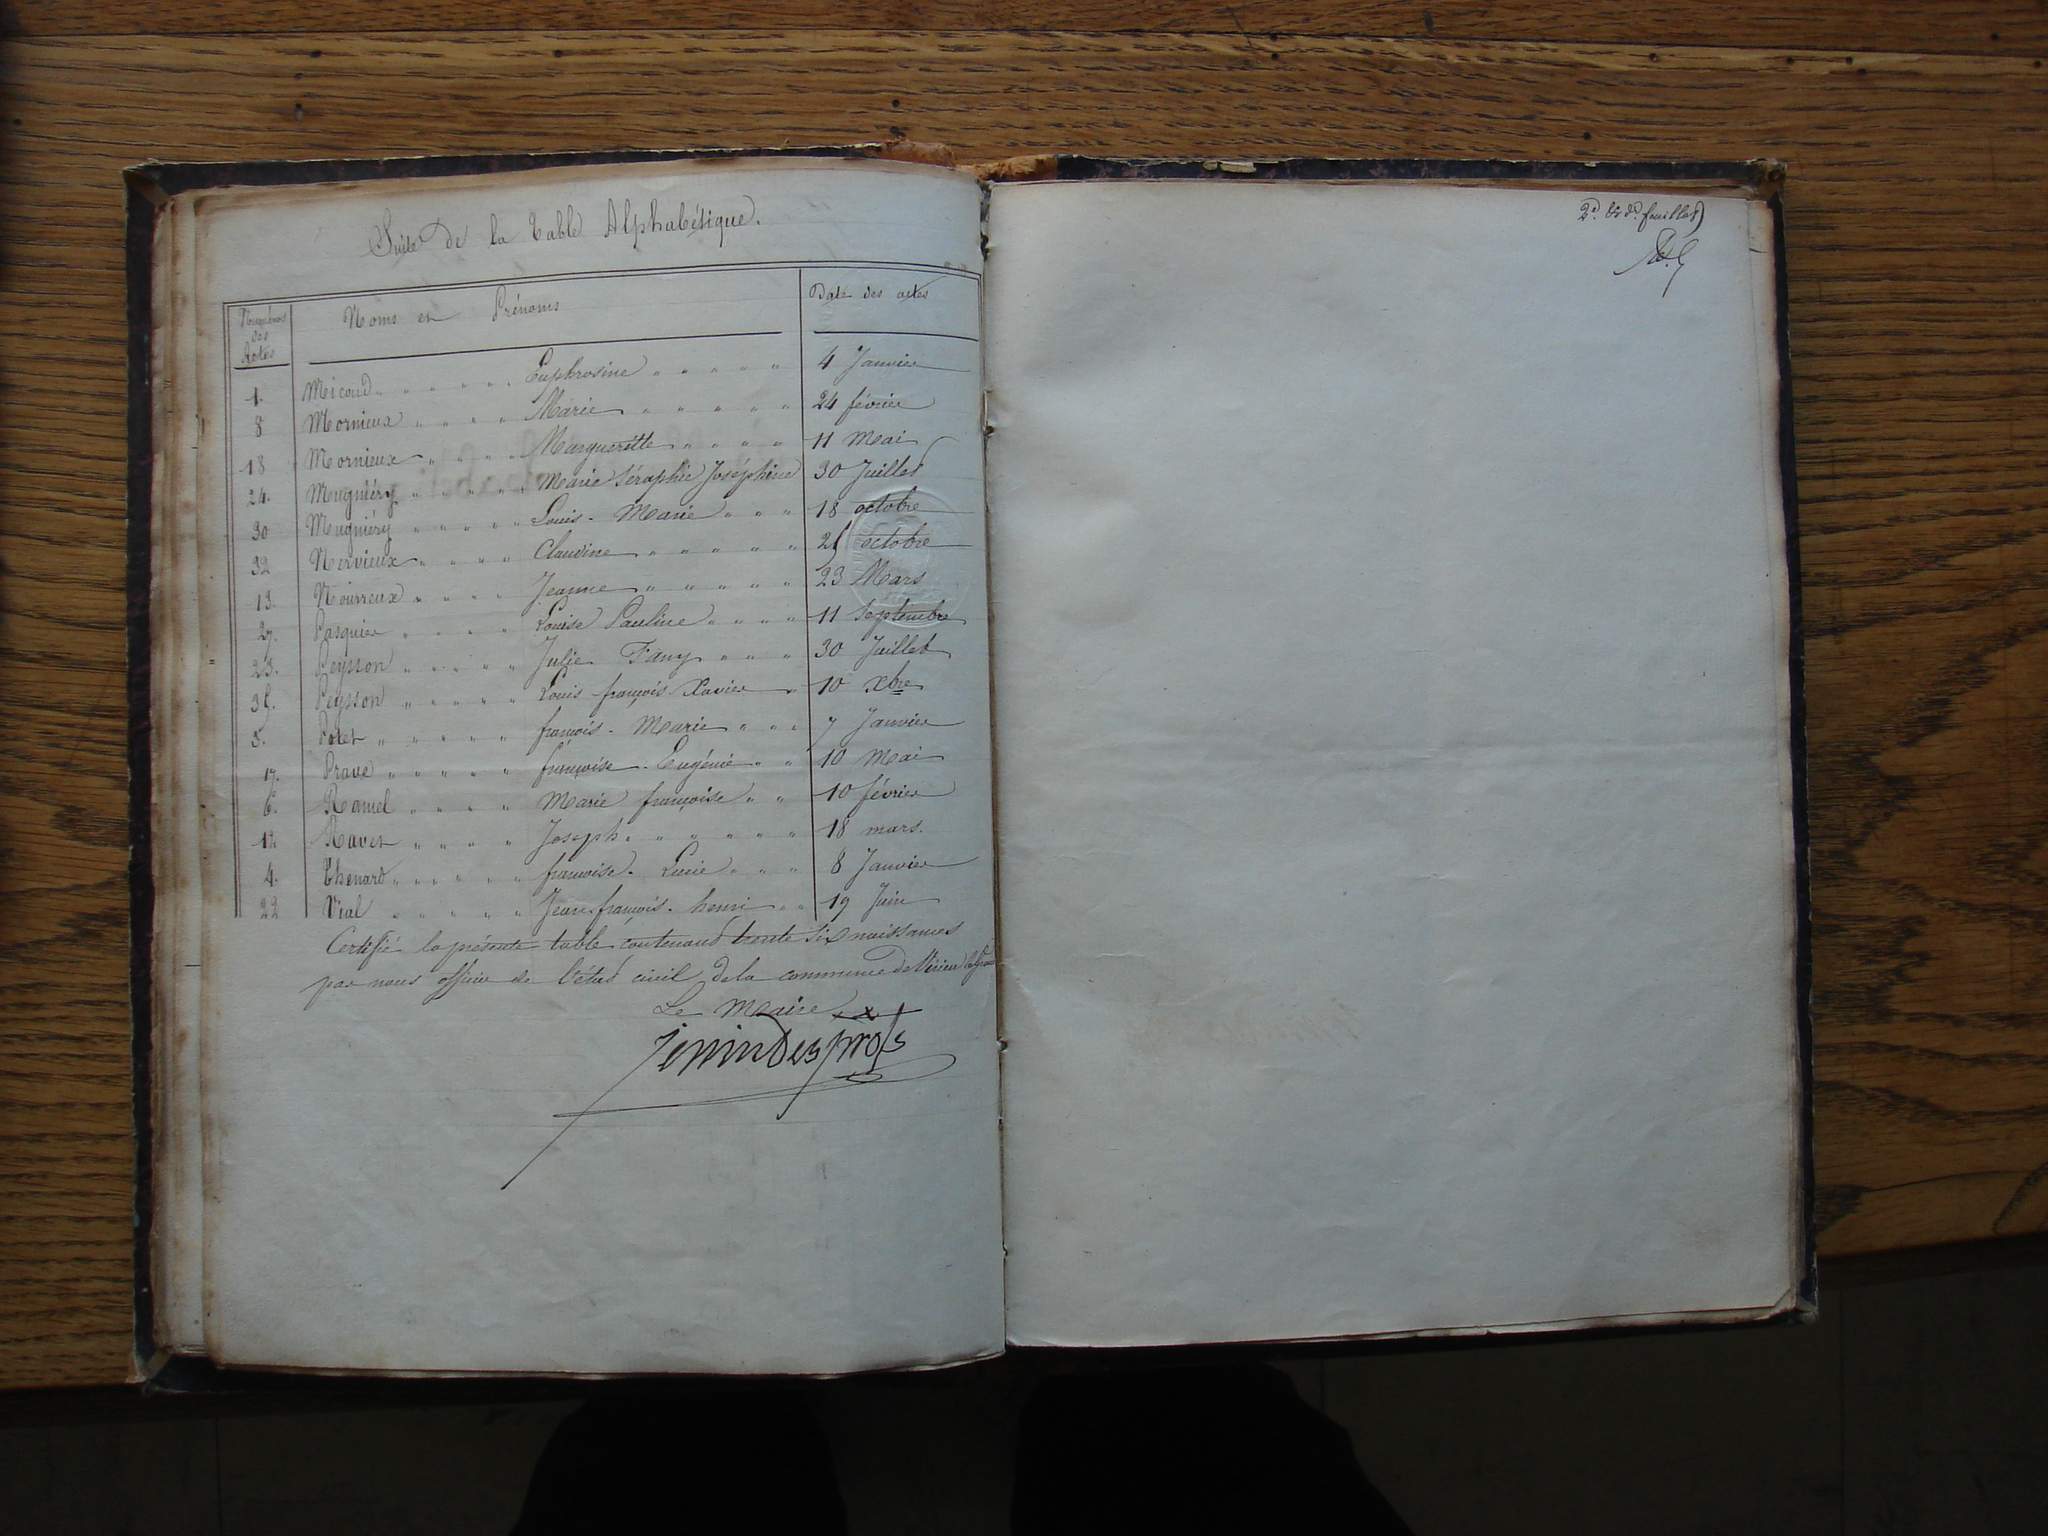 Suite de la Table Alphabétique.
Numéros des Actes
Noms et Prénoms
Date des actes
1. Micoud Euphrosine 4 Janvier
8 Mornieux Marie 24 février
18 Mornieux Marguerite 11 Mai
24. Mugniéry Marie Séraphie Joséphine 30 Juillet
30 Mugniéry Louis-Marie 18 octobre
32 Nervieux Claudine octobre
13. Jeanne 23 Mars
27. Pasquier Louise Pauline 11 Septembre
23. Peysson Julie Fany 30 Juillet
Peysson Louis françois Xavier 10 xbre
Potet françois-Marie 7 Janvier
17. Prave françoise-Eugénie 10 Mai
6. Ramel Marie françoise 10 février
12 Ravet Joseph 18 mars.
4. Thenard françoise-Lucie 8 Janvier
22 Vial Jean-françois-henri 19 Juin
Certifié la présente table contenant trente six naissances
par nous officier de l'état civil de la commune de
Le Maire
2e. feuillet